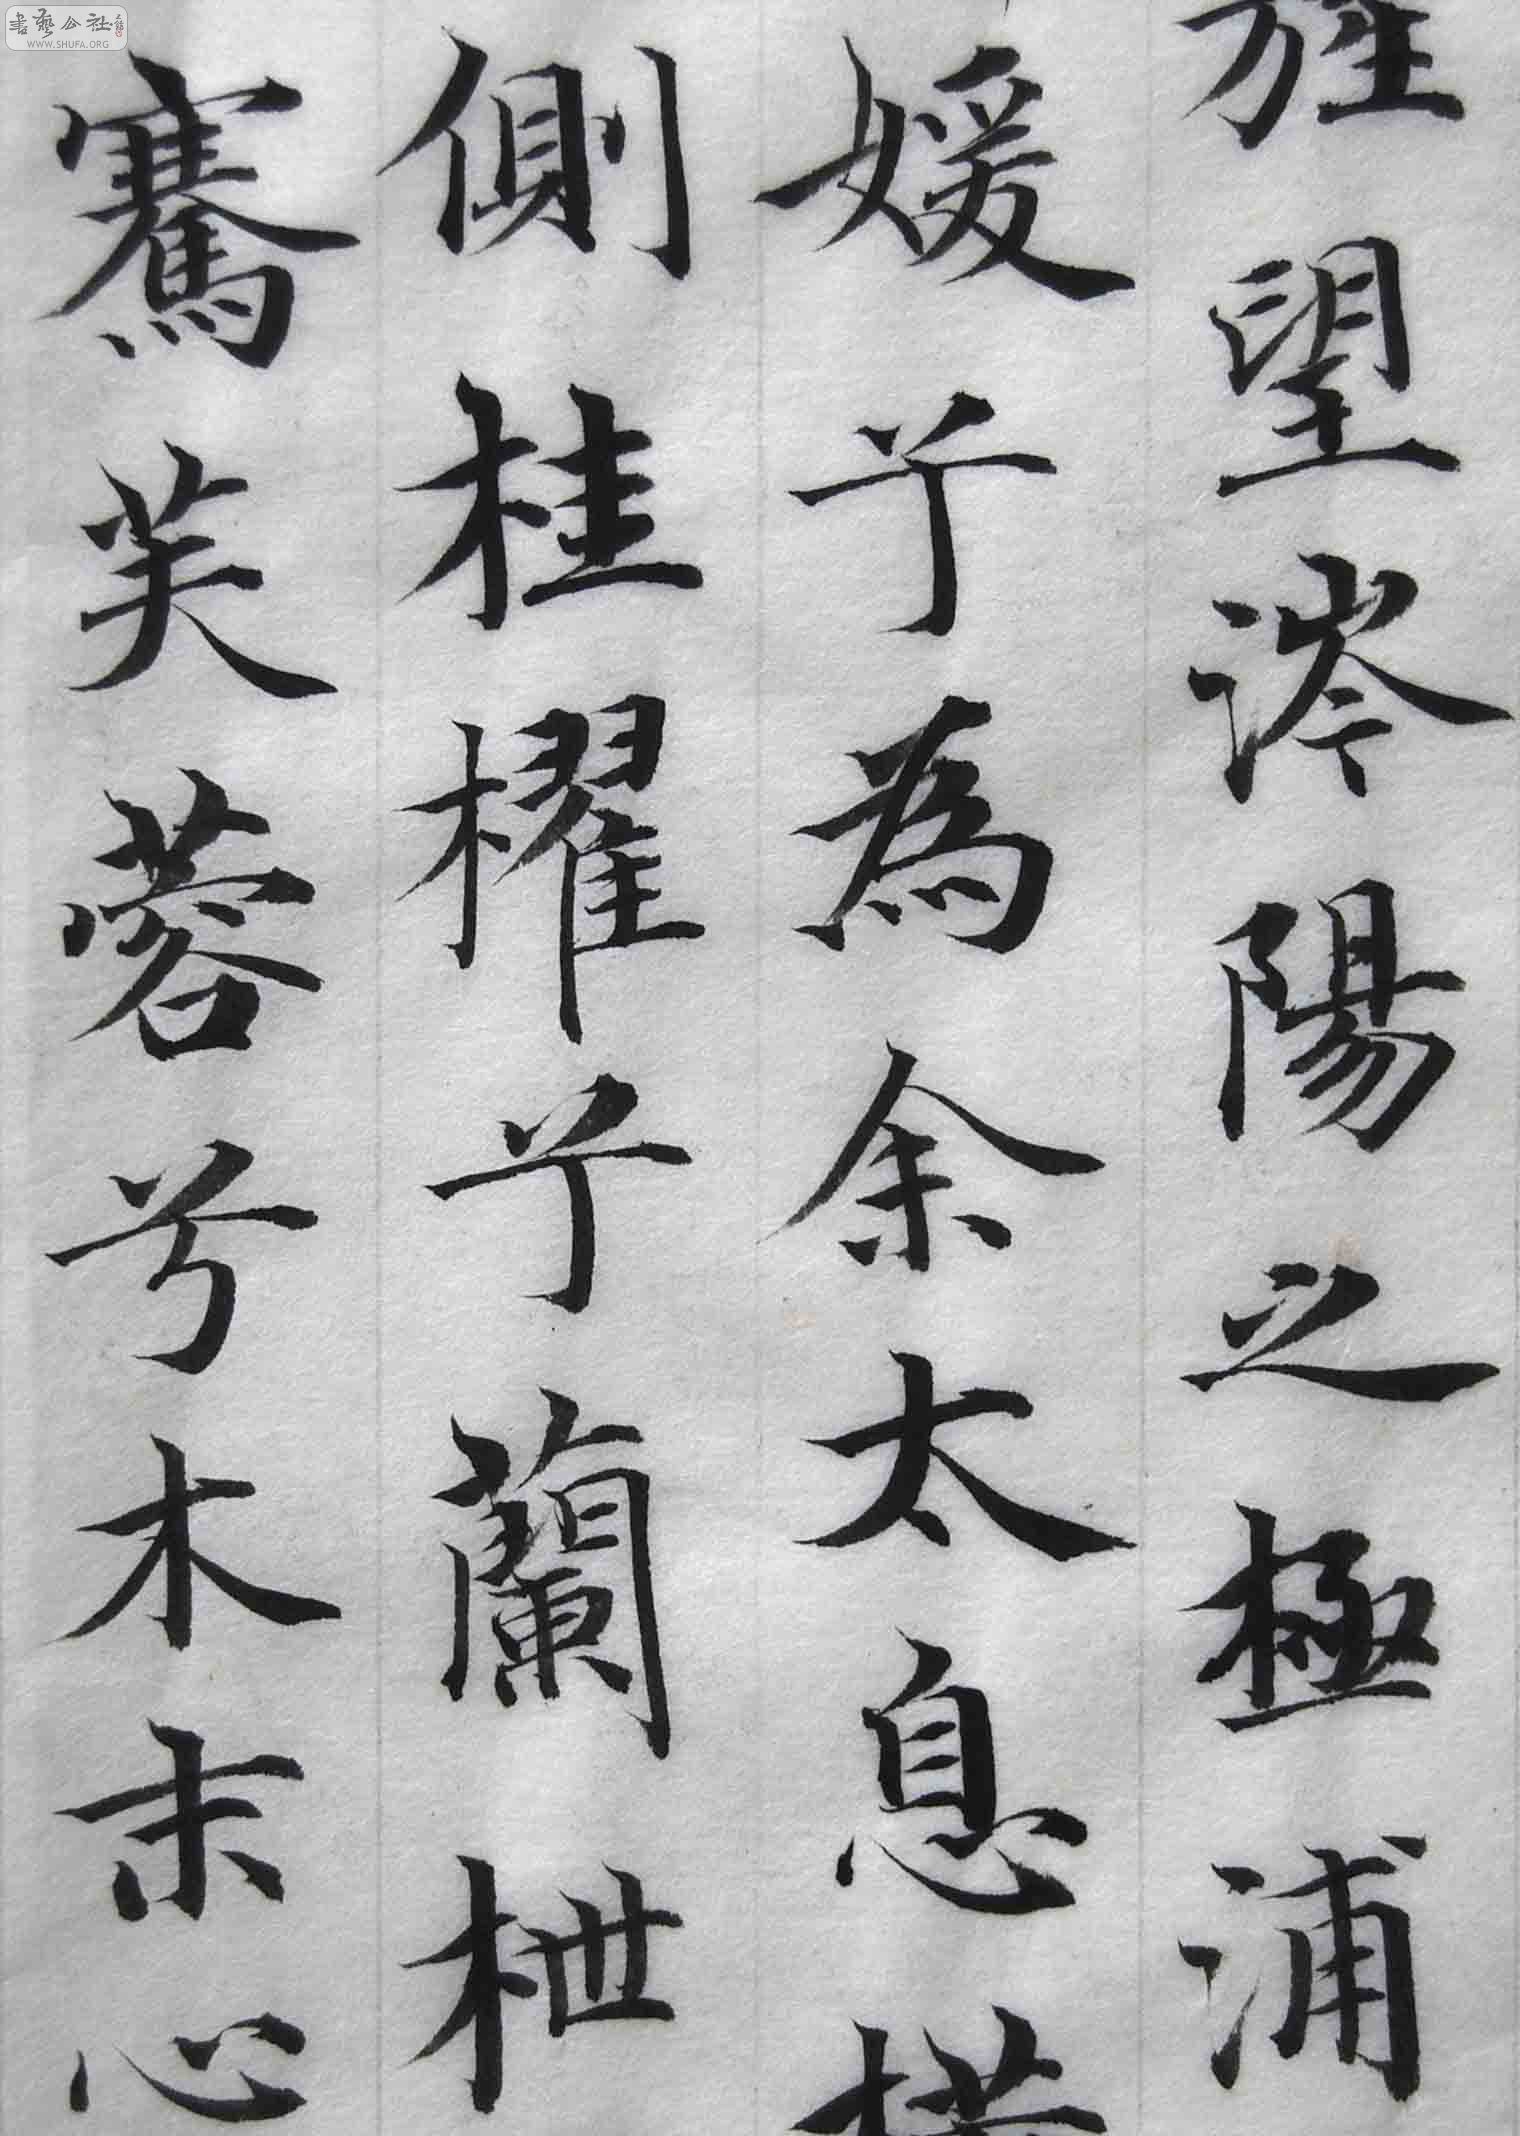 旌望涔陽之極浦
媛兮為余太息橫
側桂櫂兮蘭枻
騫芙蓉兮木末心
書藝公社
WWW.SHUFA.ORG